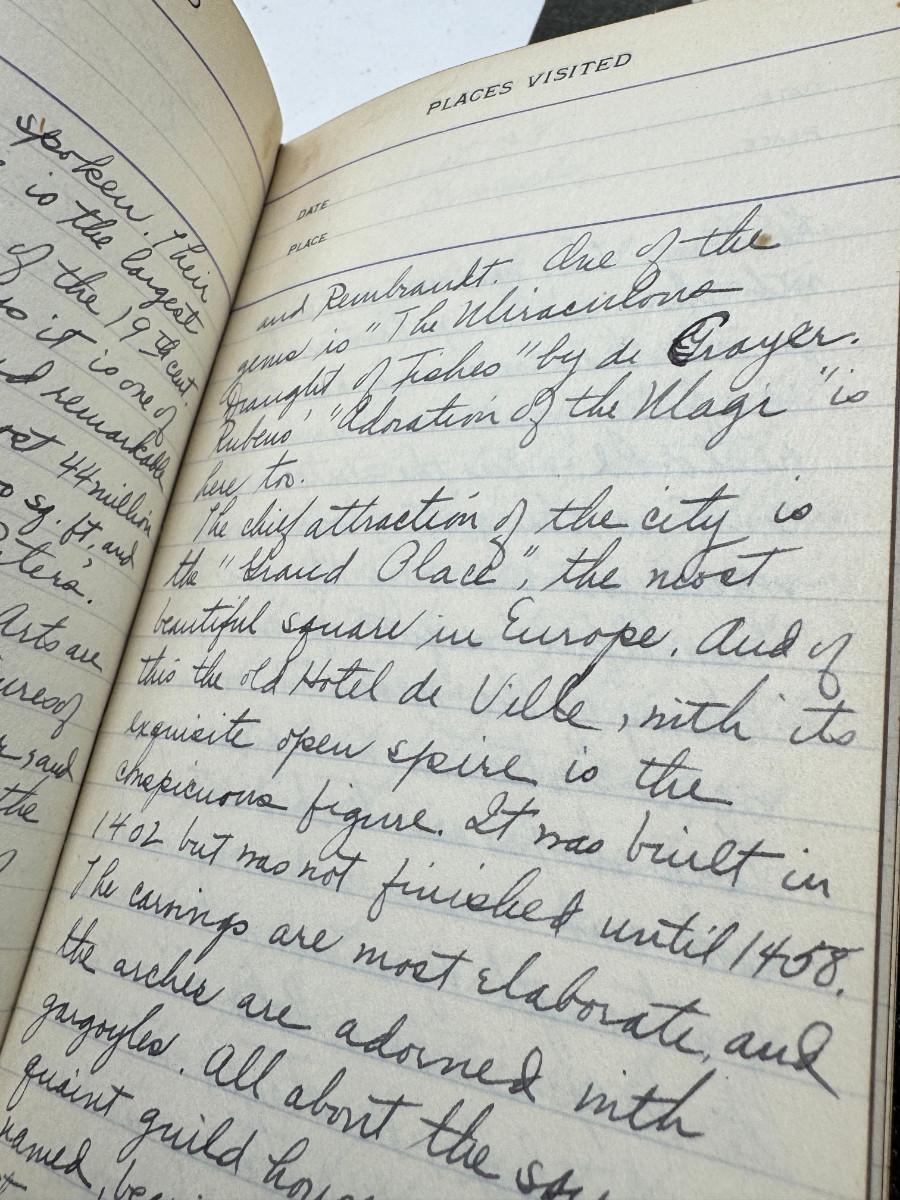 spoken. Their
is the largest
of the 19th cent.
it is one of
remarkable
44 million
sq. ft, and
Arts are
and
the
PLACES VISITED
DATE
PLACE
and Rembrandt. One of the
gems is "The Miraculous
Draught of Fishes" by de Crayer.
Rubens' "Adoration of the Magi" is
here too.
The chief attraction of the city is
the "Grand Place", the most
beautiful square in Europe. And of
this the old Hotel de Ville, with its
exquisite open spire is the
conspicuous figure. It was built in
1402 but was not finished until 1458.
The carvings are most elaborate, and
the arches are adorned with
gargoyles. All about the
quaint guild
named,